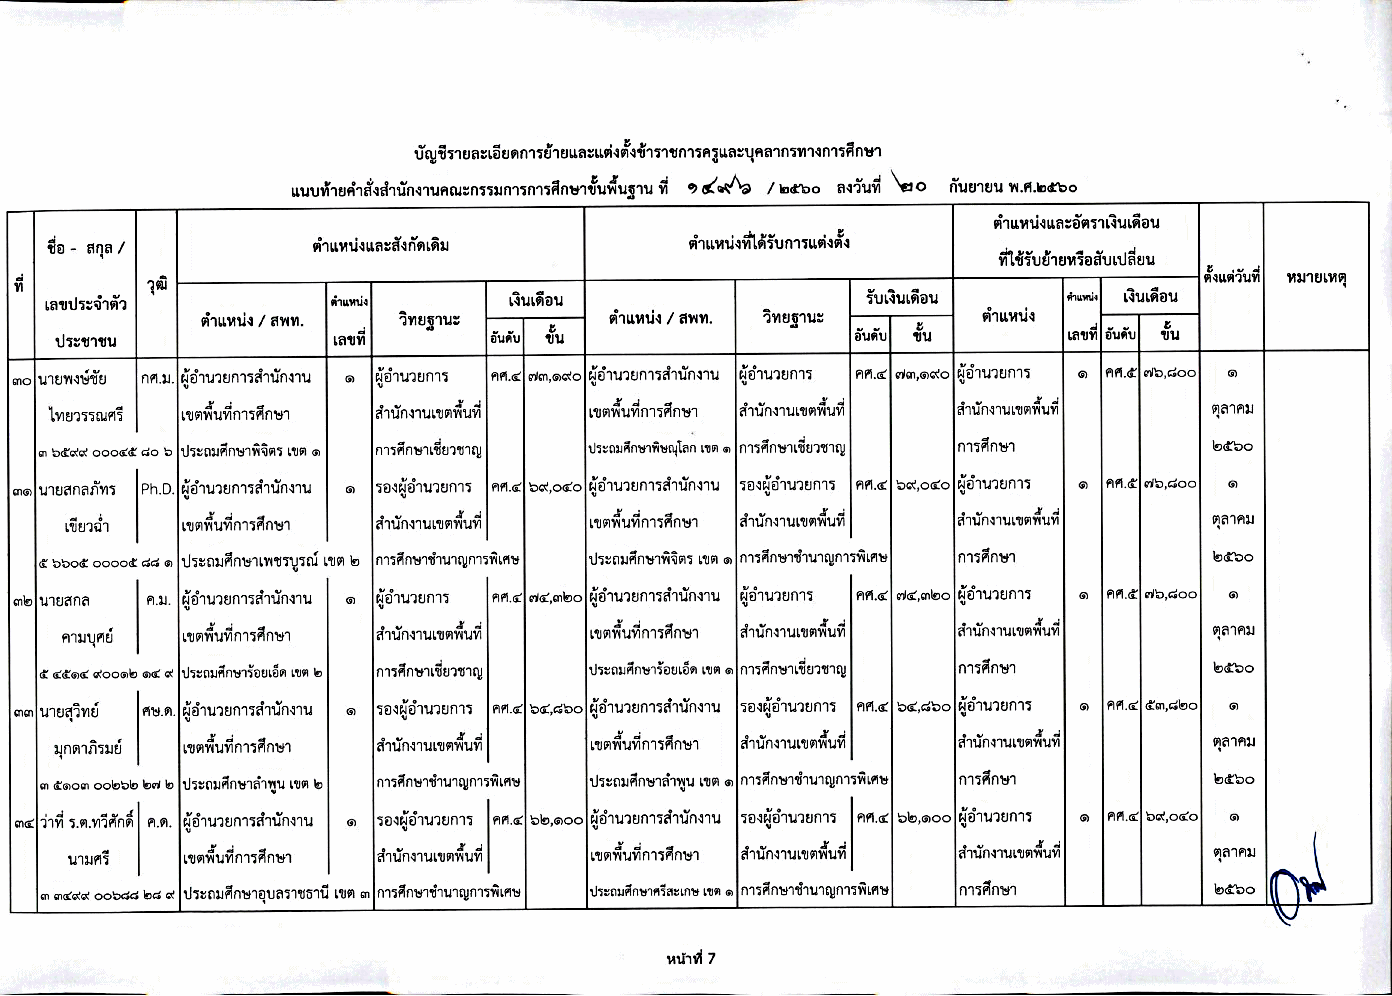 บัญชีรายละเอียดการย้ายและแต่งตั้งข้าราชการครูและบุคลากรทางการศึกษา
แนบท้ายคำสั่งสำนักงานคณะกรรมการการศึกษาขั้นพื้นฐาน ที่ ๑๔๙๖ / ๒๕๖๐ ลงวันที่ ๒๐ กันยายน พ.ศ.๒๕๖๐
ที่ ชื่อ - สกุล / เลขประจำตัว ประชาชน วุฒิ ตำแหน่งและสังกัดเดิม ตำแหน่งที่ได้รับการแต่งตั้ง ตำแหน่งและอัตราเงินเดือน ที่ใช้รับย้ายหรือสับเปลี่ยน ตั้งแต่วันที่ หมายเหตุ
ตำแหน่ง / สพท. ตำแหน่ง เลขที่ วิทยฐานะ เงินเดือน ตำแหน่ง / สพท. วิทยฐานะ รับเงินเดือน ตำแหน่ง ตำแหน่ง เลขที่ เงินเดือน
อันดับ ขั้น อันดับ ขั้น อันดับ ขั้น
๓๐ นายพงษ์ชัย กศ.ม. ผู้อำนวยการสำนักงาน ๑ ผู้อำนวยการ คศ.๔ ๗๓,๑๙๐ ผู้อำนวยการสำนักงาน ผู้อำนวยการ คศ.๔ ๗๓,๑๙๐ ผู้อำนวยการ ๑ คศ.๕ ๗๖,๘๐๐ ๑
ไทยวรรณศรี เขตพื้นที่การศึกษา สำนักงานเขตพื้นที่ เขตพื้นที่การศึกษา สำนักงานเขตพื้นที่ สำนักงานเขตพื้นที่ ตุลาคม
๓ ๖๕๙๙ ๐๐๐๔๕ ๘๐ ๖ ประถมศึกษาพิจิตร เขต ๑ การศึกษาเชี่ยวชาญ ประถมศึกษาพิษณุโลก เขต ๑ การศึกษาเชี่ยวชาญ การศึกษา ๒๕๖๐
๓๑ นายสกลภัทร Ph.D. ผู้อำนวยการสำนักงาน ๑ รองผู้อำนวยการ คศ.๔ ๖๙,๐๔๐ ผู้อำนวยการสำนักงาน รองผู้อำนวยการ คศ.๔ ๖๙,๐๔๐ ผู้อำนวยการ ๑ คศ.๕ ๗๖,๘๐๐ ๑
เขียวฉ่ำ เขตพื้นที่การศึกษา สำนักงานเขตพื้นที่ เขตพื้นที่การศึกษา สำนักงานเขตพื้นที่ สำนักงานเขตพื้นที่ ตุลาคม
๕ ๖๖๐๕ ๐๐๐๐๕ ๘๘ ๑ ประถมศึกษาเพชรบูรณ์ เขต ๒ การศึกษาชำนาญการพิเศษ ประถมศึกษาพิจิตร เขต ๑ การศึกษาชำนาญการพิเศษ การศึกษา ๒๕๖๐
๓๒ นายสกล ค.ม. ผู้อำนวยการสำนักงาน ๑ ผู้อำนวยการ คศ.๔ ๗๔,๓๒๐ ผู้อำนวยการสำนักงาน ผู้อำนวยการ คศ.๔ ๗๔,๓๒๐ ผู้อำนวยการ ๑ คศ.๕ ๗๖,๘๐๐ ๑
คามบุศย์ เขตพื้นที่การศึกษา สำนักงานเขตพื้นที่ เขตพื้นที่การศึกษา สำนักงานเขตพื้นที่ สำนักงานเขตพื้นที่ ตุลาคม
๕ ๔๕๑๔ ๙๐๐๑๒ ๑๔ ๙ ประถมศึกษาร้อยเอ็ด เขต ๒ การศึกษาเชี่ยวชาญ ประถมศึกษาร้อยเอ็ด เขต ๑ การศึกษาเชี่ยวชาญ การศึกษา ๒๕๖๐
๓๓ นายสุวิทย์ ศษ.ด. ผู้อำนวยการสำนักงาน ๑ รองผู้อำนวยการ คศ.๔ ๖๔,๘๖๐ ผู้อำนวยการสำนักงาน รองผู้อำนวยการ คศ.๔ ๖๔,๘๖๐ ผู้อำนวยการ ๑ คศ.๔ ๕๓,๘๒๐ ๑
มุกดาภิรมย์ เขตพื้นที่การศึกษา สำนักงานเขตพื้นที่ เขตพื้นที่การศึกษา สำนักงานเขตพื้นที่ สำนักงานเขตพื้นที่ ตุลาคม
๓ ๕๑๐๓ ๐๐๒๖๒ ๒๗ ๒ ประถมศึกษาลำพูน เขต ๒ การศึกษาชำนาญการพิเศษ ประถมศึกษาลำพูน เขต ๑ การศึกษาชำนาญการพิเศษ การศึกษา ๒๕๖๐
๓๔ ว่าที่ ร.ต.ทวีศักดิ์ ค.ด. ผู้อำนวยการสำนักงาน ๑ รองผู้อำนวยการ คศ.๔ ๖๒,๑๐๐ ผู้อำนวยการสำนักงาน รองผู้อำนวยการ คศ.๔ ๖๒,๑๐๐ ผู้อำนวยการ ๑ คศ.๔ ๖๙,๐๔๐ ๑
นามศรี เขตพื้นที่การศึกษา สำนักงานเขตพื้นที่ เขตพื้นที่การศึกษา สำนักงานเขตพื้นที่ สำนักงานเขตพื้นที่ ตุลาคม
๓ ๓๔๙๙ ๐๐๖๘๘ ๒๘ ๙ ประถมศึกษาอุบลราชธานี เขต ๓ การศึกษาชำนาญการพิเศษ ประถมศึกษาศรีสะเกษ เขต ๑ การศึกษาชำนาญการพิเศษ การศึกษา ๒๕๖๐
หน้าที่ 7